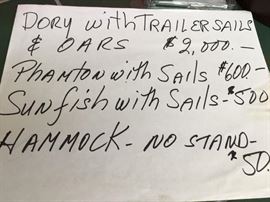 DORY with TRAILER SAILS
& OARS $2,000.—
PHAMTON with Sails $600.—
SUNfish with Sails - $500
HAMMOCK - NO STAND -
$50.